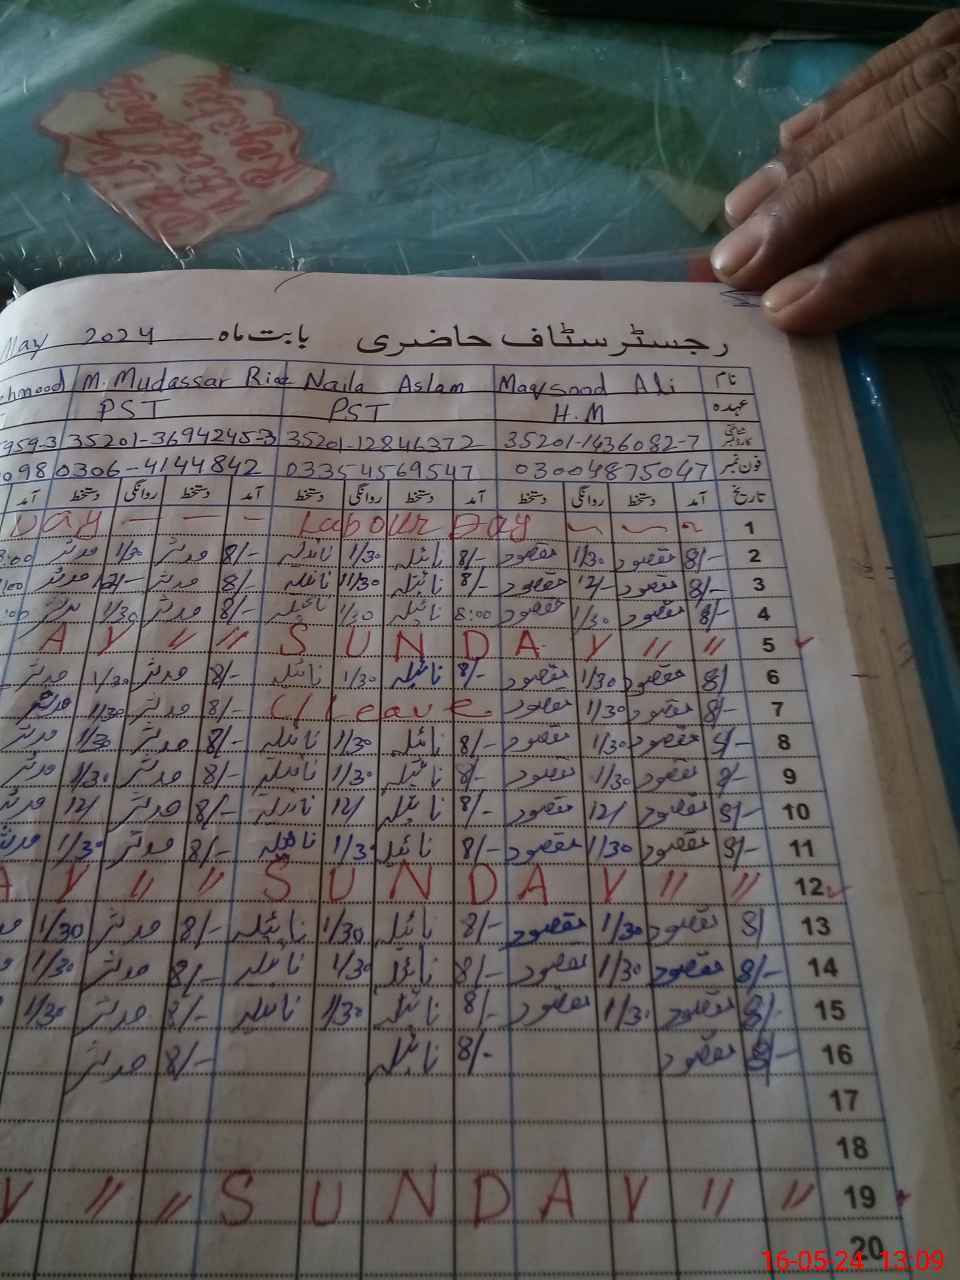 رجسٹر سٹاف حاضری بابت ماہ May 2024
نام Maqsood Ali Naila Aslam M. Mudassar Riaz hmood
عہدہ H.M PST PST
شناختی کارڈ نمبر 35201-1436082-7 35201-12846372 35201-36942453 959-3
فون نمبر 03004875047 03354569547 0306-4144842 098
تاریخ آمد دستخط روانگی دستخط آمد دستخط روانگی دستخط آمد دستخط روانگی دستخط آمد
1 Day - - - Labour Day
2 8/- مقصود 1/30 مقصود 8/- نائیلہ 1/30 نائیلہ 8/- مدثر 1/30 مدثر 8:00
3 8/- مقصود 12/- مقصود 8/- نائیلہ 11/30 نائیلہ 8/- مدثر 12/- مدثر :00
4 8/- مقصود 1/30 مقصود 8:00 نائیلہ 1/30 نائیلہ 8/- مدثر 1/30 مدثر :00
5 A Y " " S U N D A Y " "
6 8/ مقصود 1/30 مقصود 8/- نائیلہ 1/30 نائیلہ 8/- مدثر 1/30 مدثر
7 8/- مقصود 1/30 مقصود C/Leave 8/- مدثر 1/30 مدثر
8 8/- مقصود 1/30 مقصود 8/- نائیلہ 1/30 نائیلہ 8/- مدثر 1/30 مدثر
9 8/- مقصود 1/30 مقصود 8/- نائیلہ 1/30 نائیلہ 8/- مدثر 1/30 مدثر
10 8/- مقصود 12/ مقصود 8/- نائیلہ 12/ نائیلہ 8/- مدثر 12/ مدثر
11 8/- مقصود 1/30 مقصود 8/- نائیلہ 1/30 نائیلہ 8/- مدثر 1/30 مدثر
12 A Y " " S U N D A Y " "
13 8/ مقصود 1/30 مقصود 8/- نائیلہ 1/30 نائیلہ 8/- مدثر 1/30
14 8/- مقصود 1/30 مقصود 8/- نائیلہ 1/30 نائیلہ 8/- مدثر 1/30
15 8/- مقصود 1/30 مقصود 8/- نائیلہ 1/30 نائیلہ 8/- مدثر 1/30
16 8/- مقصود 8/- نائیلہ 8/- مدثر
17
18
19 Y " " S U N D A Y " "
20
16-05-24 13:09